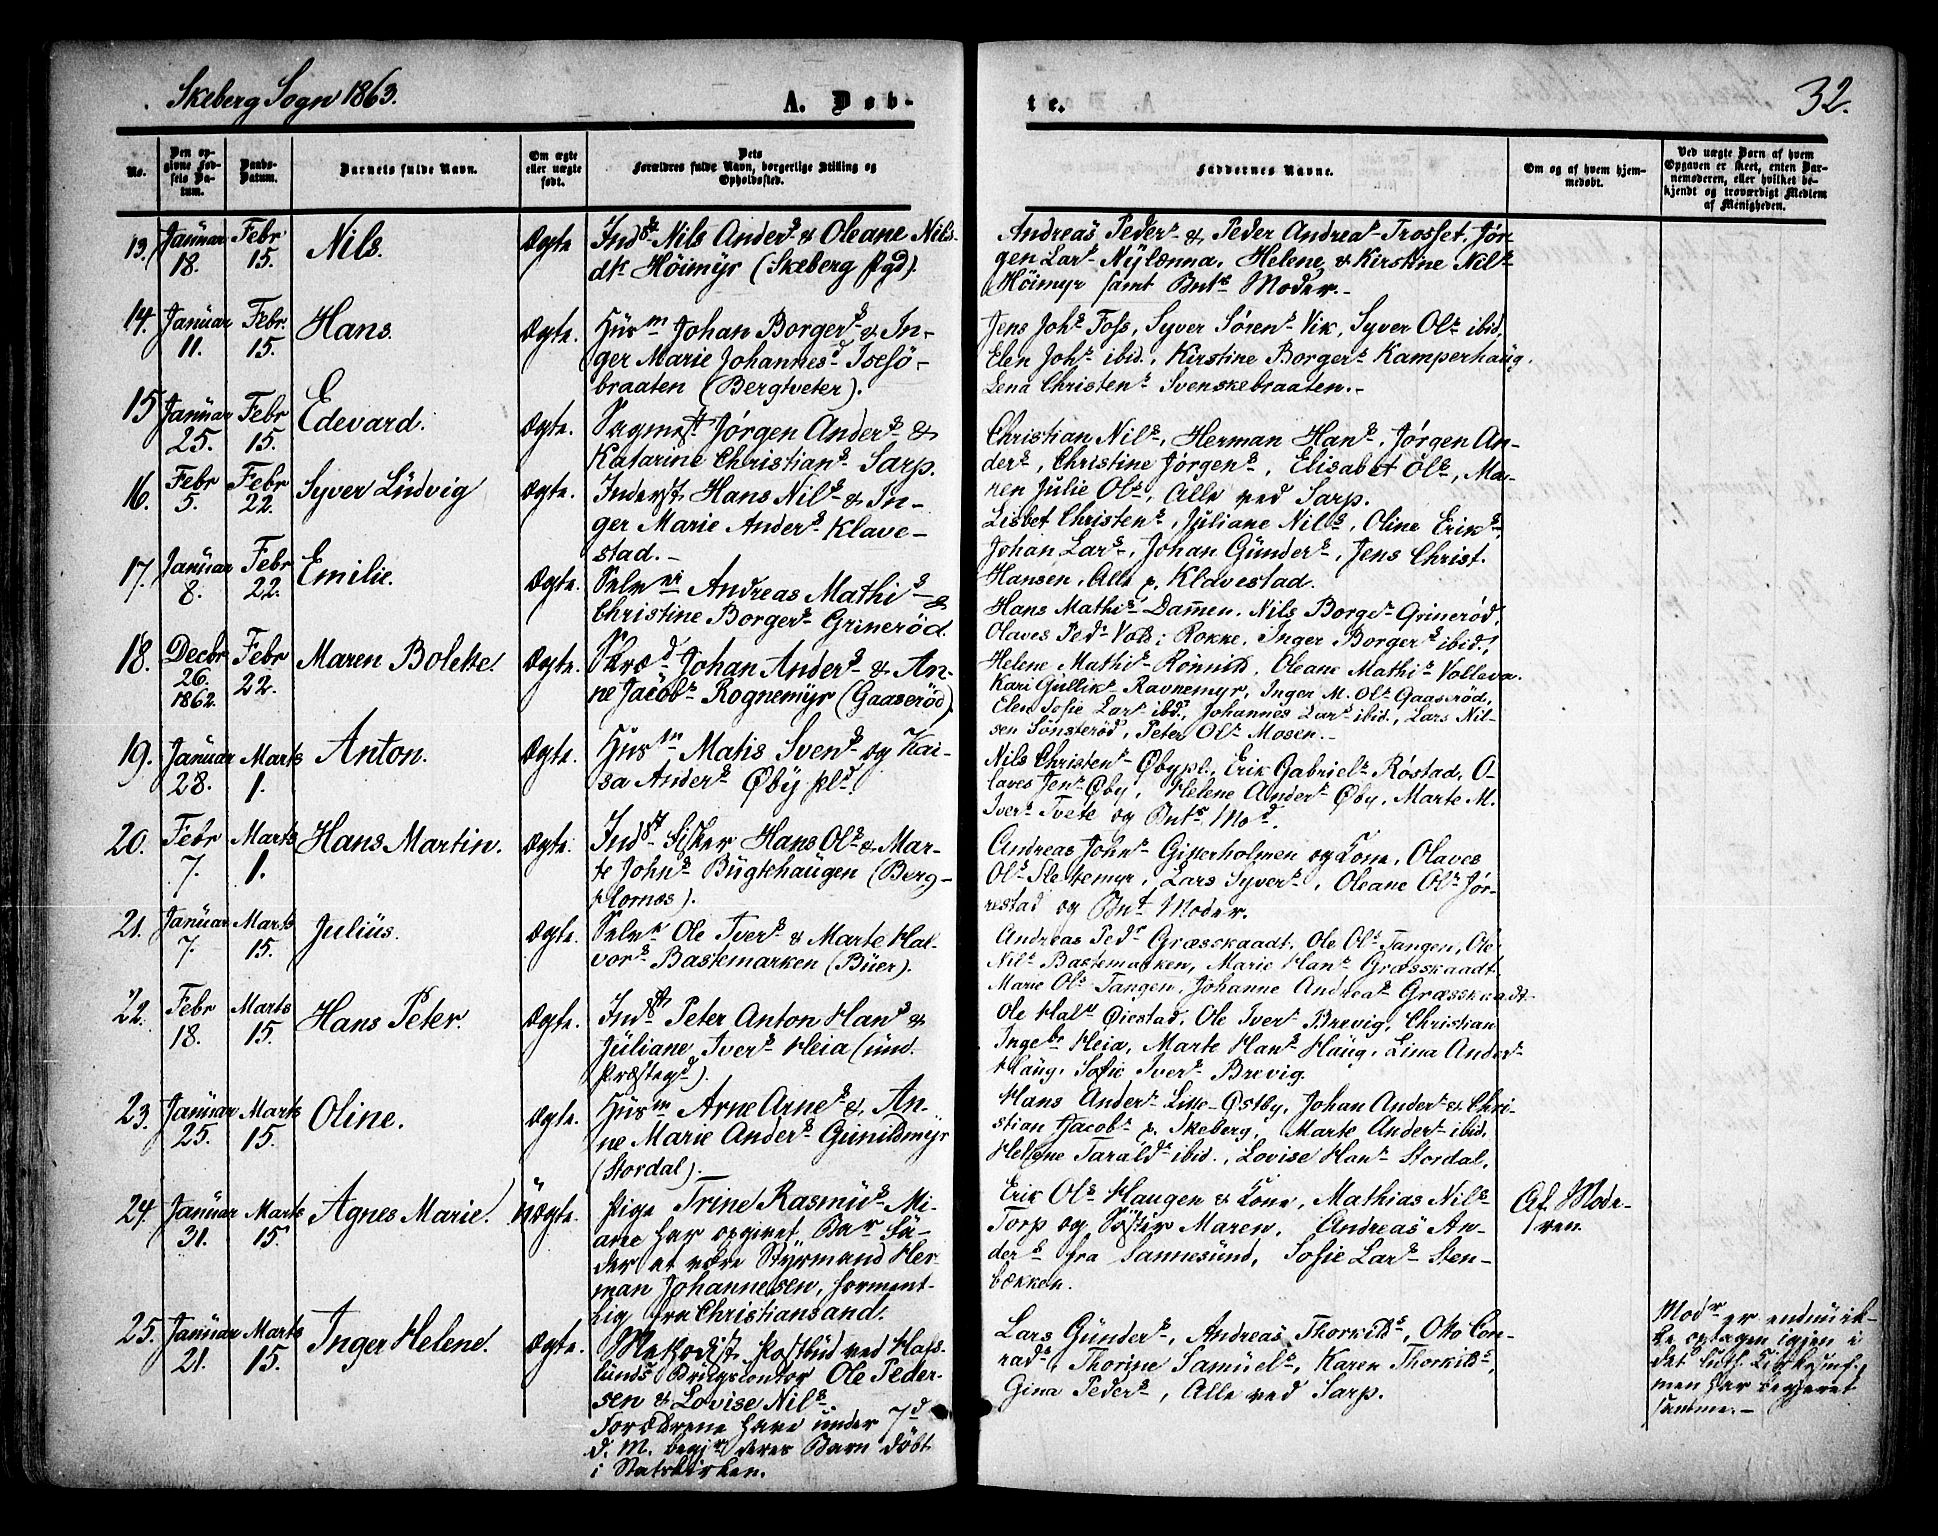 Skeberg Sogn 1863.
A. Døb-
te.
32.
No.
Den op-
givne Fød-
sels Da-
tum.
Daabs-
Datum.
Barnets fulde Navn.
Om ægte
eller uægte
født.
Dets
Forældres fulde Navn, borgerlige Stilling og
Opholdssted.
Faddernes Navne.
Om og af hvem hjem-
medøbt.
Ved uægte Børn af hvem
Opgaven er skeet, enten Bar-
nemoderen, eller hvilket be-
kjendt og troværdigt Medlem
af Menigheden.
13. Januar 18. Febr 15. Nils. Ægte
Inds Nils Anders & Oleane Nils-
dt Höimyr (Skeberg Pgd).
Andreas Peders & Peder Andreas Trosset, Jør-
gen Lars Nylænna, Helene & Kirstine Nils
Höimyr samt Bnts Moder.-
14. Januar 11. Febr. 15. Hans. Ægte.
Husm Johan Borgers & In-
ger Marie Johannesd Isesö-
braaten (Bergtveter).
Jens Johs Foss, Syver Sørens Vik, Syver Ols ibid,
Elen Johs ibid., Kirstine Borgers Kamperhaug,
Lena Christens Svenskebraaten.-
15 Januar 25. Febr 15. Edevard. Ægte.
Sagmest Jørgen Anders &
Katarine Christians Sarp.
Christian Nils, Herman Hans, Jørgen An-
ders, Christine Jørgens, Elisabet Ols, Ma-
ren Julie Ols, Alle ved Sarp.
16. Febr 5. Febr 22. Syver Ludvig Ægte.
Inderst Hans Nils & In-
ger Marie Anders Klave-
stad.-
Lisbet Christens, Juliane Nils, Oline Eriks,
Johan Lars, Johan Gunders, Jens Christ.
Hansen, Alle p. Klavestad.
17. Januar 8. Febr 22. Emilie. Ægte.
Selvei Andreas Mathis &
Christine Borgers Grinerød.
Hans Mathis Dammen, Nils Borges Grinerød,
Olaves Peds Rokke, Inger Borgers ibid.,
Helene Mathis Oleane Mathis
18. Decbr 26. 1862. Febr 22. Maren Bolette. Ægte.
Skræd Johan Anders & An-
ne Jacobs Rognemyr (Gaaserød).
Kari Gulliks Ravnemyr, Inger M. Ols Gaaserød,
Elen Sofie Lars ibd, Johannes Lars ibid., Lars Nil-
sen Sönsterød, Peter Ols Mosen.-
19. Januar 28. Marts 1. Anton. Ægte.
Husm Matis Svens og Kai-
sa Anders Øby pld.
Nils Christens Øbypl., Erik Gabriels Røstad, O-
laves Jens Øby, Helene Anders Øby, Marte M.
Ivers Tvete og Bnts Mod.
20. Febr 7. Marts 1. Hans Martin. Ægte.
Indst Fisker Hans Ols & Mar-
te Johns Bugtehaugen (Berg-
Hornæs).
Andreas Johns Gitterholmen og Kone, Olaves
Ols Slettemyr, Lars Syvers, Oleane Ols Jør-
restad og Bnts Moder.
21. Januar 7. Marts 15. Julius. Ægte.
Selve Ole Ivers & Marte Hal-
vors Bastemarken (Buer).
Andreas Peds Græsskaadt, Ole Ols Tangen, Ole
Nils Bastemarken, Marie Hans Græsskaadt
Marie Ols Tangen, Johanne Andreas Græsskaadt
22. Febr 18. Marts 15. Hans Peter. Ægte.
Indst Peter Anton Hans &
Juliane Ivers Heia (und.
Præstegd).
Ole Hals Øiestad, Ole Ivers Brevig, Christian
Ingebr Heia, Marte Hans Haug, Lina Anders
Haug, Sofie Ivers Brevig.
23. Januar 25. Marts 15. Oline. Ægte.
Husm Arne Arnes & An-
ne Marie Anders Gunildmyr
(Stordal).-
Hans Anders Lille-Østby, Johan Anders & Chri-
stian Jacobs p. Skeberg, Marte Anders ibid,
Helene Taralds ibid., Lovise Hans Stordal,
24. Januar 31. Marts 15. Agnes Marie. Uægte.
Pige Trine Rasmus Mi-
arie har opgivet Bar Fa-
der at være Styrmand Her-
man Johannesen, forment-
lig fra Christiansand.
Erik Ols Haugen & Kone, Mathias Nils
Torp og Søster Maren, Andreas An-
ders fra Sannesund, Sofie Lars Sten-
bækken.
Af Mode-
ren.
25. Januar 21. Marts 15. Inger Helene. Ægte.
Metodist Postbud ved Hafs-
lunds Brugscontor Ole Peder-
sen & Lovise Nils.
Forældrene have under 7d
d. M. begjr deres Barn døbt
i Statskirken.
Lars Gunders, Andreas Thorkilds, Otto Con-
rads, Thorine Samuels, Karen Thorkilds,
Gina Peders, Alle ved Sarp.
Modr er endnu ik-
ke optagen igjen i
det luth. Kirkesamf.,
men har begjæret
samme.-